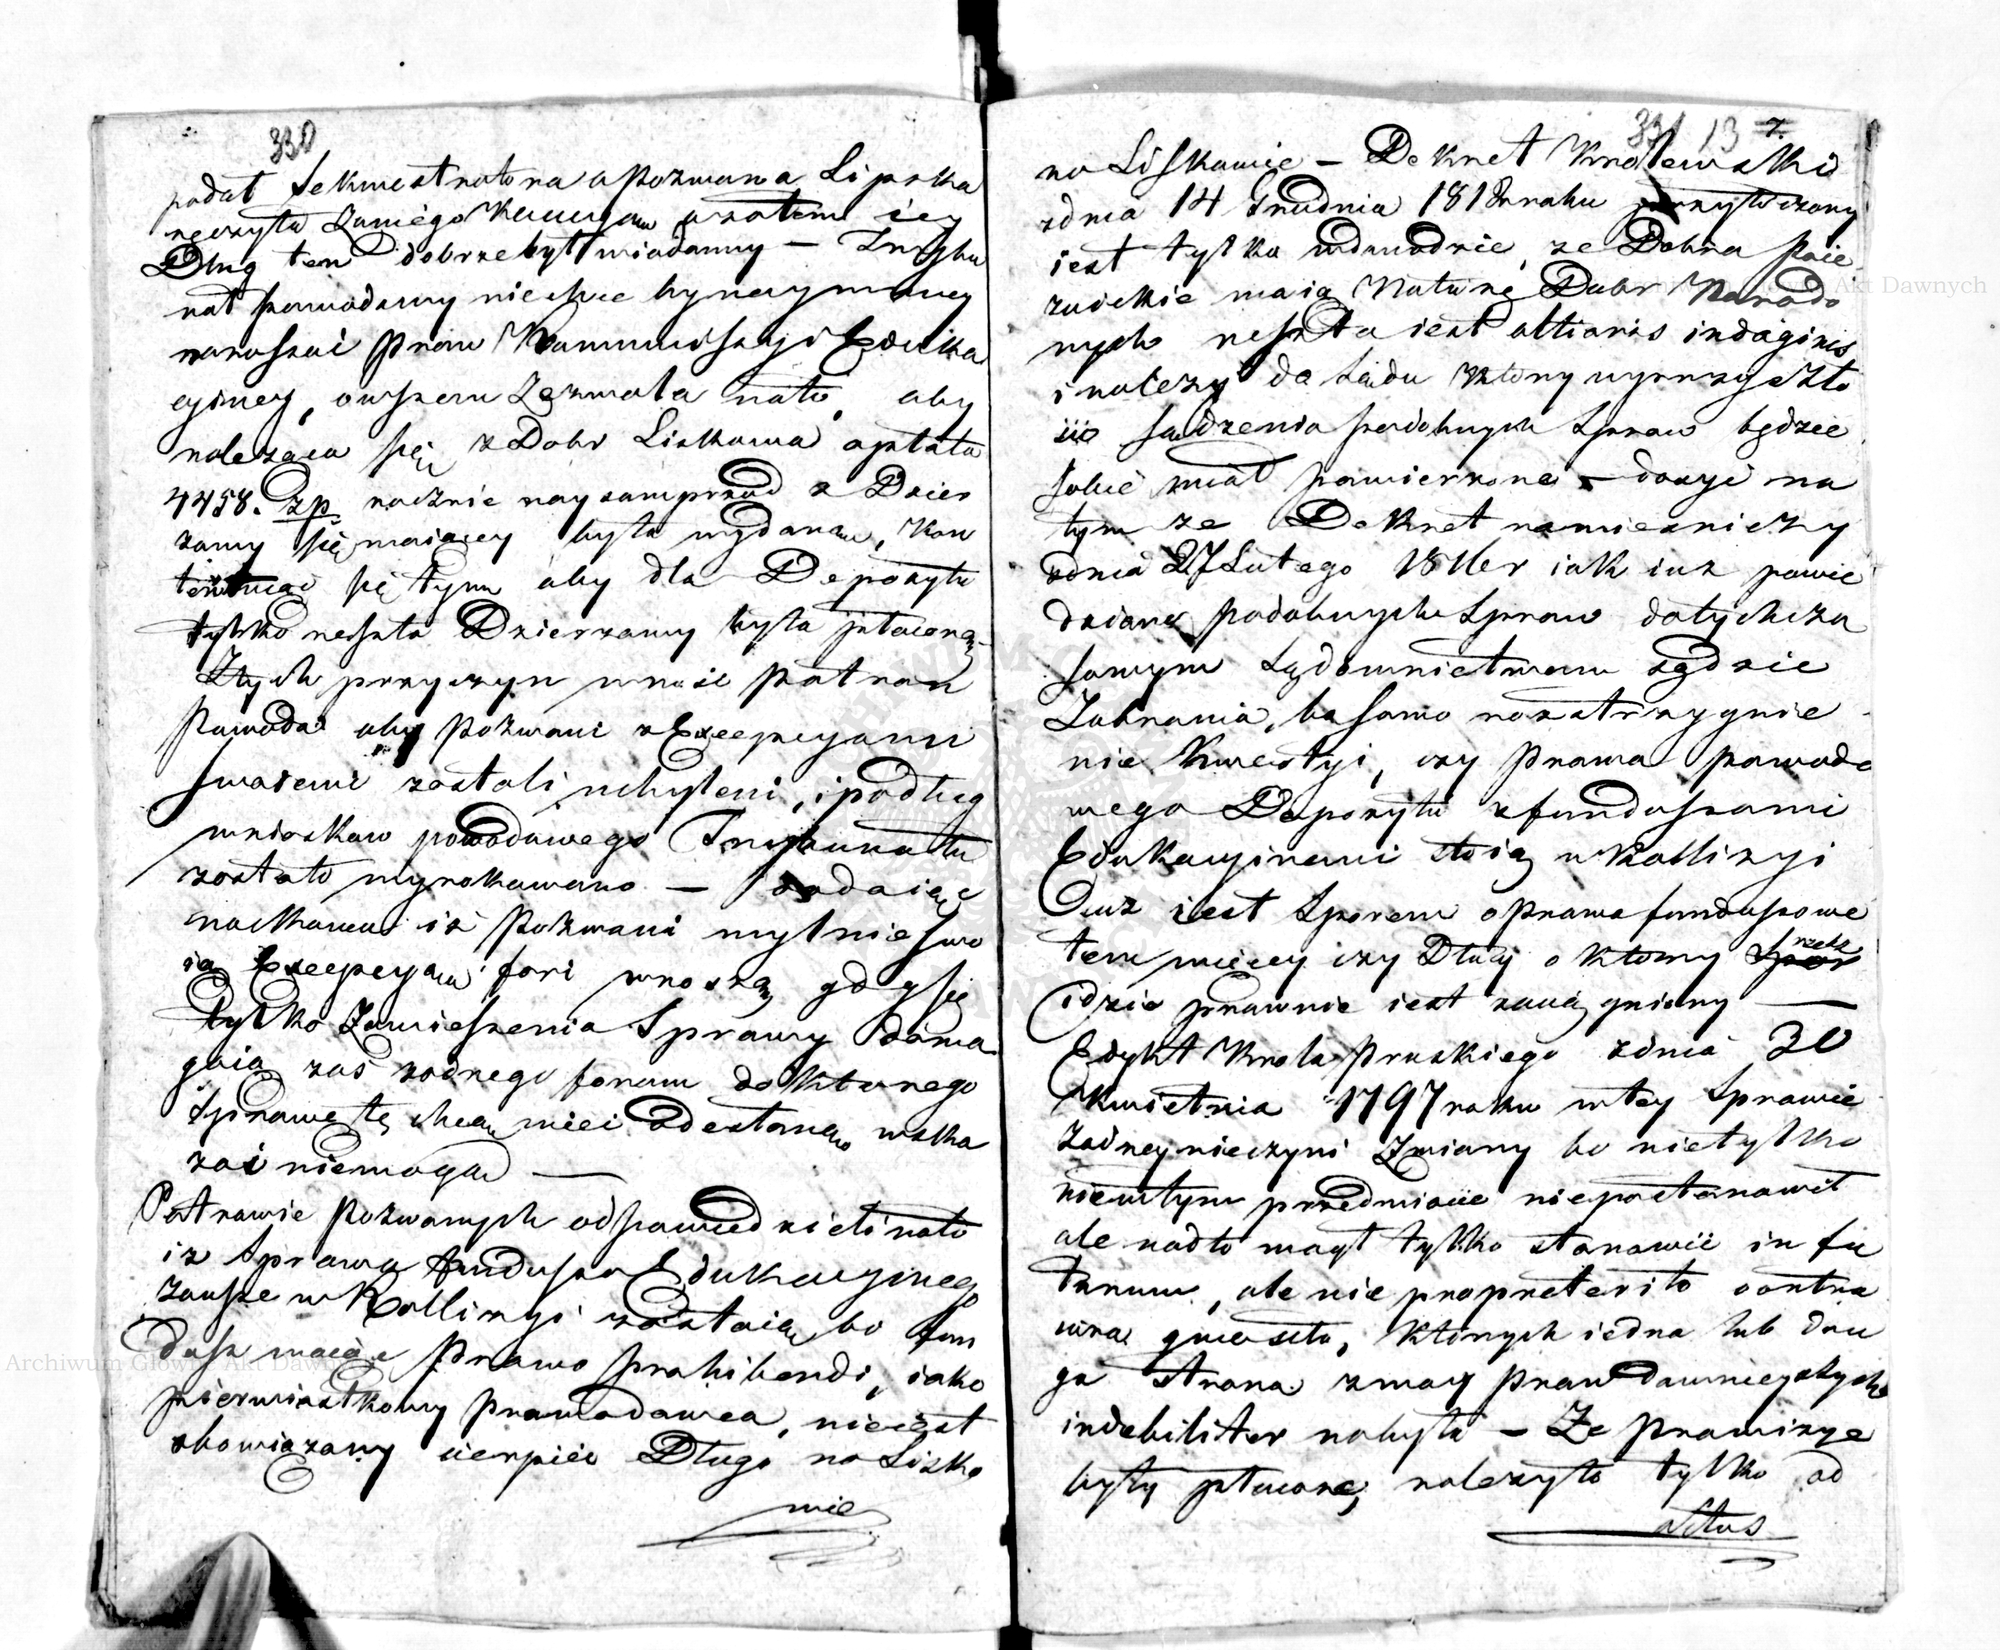 330
podał Sekwestratora a Pozwana Lipska
ręczyła zaniego a zatem iey
Dług ten dobrze był wiadomy – Trybu
nał powodowy niechce bynaymniey
naruszać Praw Kommissyi Eduka
cyiney, owszem Zezwala nato, aby
należąca się z Dobr Liskowa opłata
4458. zp. rocznie naysamprzod z Dzier
żawy się maiącey była wydana, kon
tentuiąc się tym aby dla Depozytu
tylko reszta Dzierzawy była płaconą.
Ztych przyczyn wnosi Patron
Powoda aby Pozwani z Excepcyami
swoiemi zostali uchyleni, i podług
wniosków powodowego Trybunału
zostało wyrokowano – dodaiąc
nadkoniec iż Pozwani mylnie swo
ią Excepcyą fori wnoszą, gdy się
tylko Zawieszenia Sprawy doma
gaią zaś żadnego forum do którego
Sprawę tę chcą mieć odesłaną wska
zać niemogą —
Patronowie Pozwanych odpowiedzieli nato
iż Sprawa funduszu Edukacyinego
zawsze w Kollizyi zostaią bo fun
dusz maiąc Prawo prohibendi, iako
pierwiastkowy prawodawca, nieiest
obowiązany cierpieć Długo na Lisko
wie
331 13 7.
na Liskowie – Dekret Krolewski
zdnia 14 Grudnia 1812 roku przytoczony
iest tylko wdowodzie, że Dobra Poie
zuickie maią Naturę Dobr Narodo
wych reszta iest altioris indaginis
i należy do Sądu który wprzyszło
ści sądzenia podobnych Spraw będzie
sobie miał powierzone – dosyć na
tym że Dekret namiesniczy
zdnia 27 Lutego 1811 r iak iuż powie
dziano podobnych Spraw dotychcza
sowym Sądownictwom sądzie
Zabrania, bo samo rozstrzygnie
nie kwestyi, czy Prawa powodo
wego Depozytu z funduszami
Edukacyinemi stoią w Kollizyi
Iuż iest Sporem o prawa funduszowe
tem więcey czy Dług o ktory rzecz
idzie prawnie iest zaciągniony —
Edykt Krola Pruskiego zdnia 30
Kwietnia 1797 roku wtey Sprawie
żadney nieczyni Zmiany bo nietylko
niewtym przedmiocie niepostanowił
ale nadto mógł tylko stanowić in fu
turum, ale nie propreterito contra
iura quaesita, których iedna lub dru
ga strona z mocy praw dawnieyszych
indebiliter nabyła – Że Prowizye
były płacone, należyto tylko od
Actus